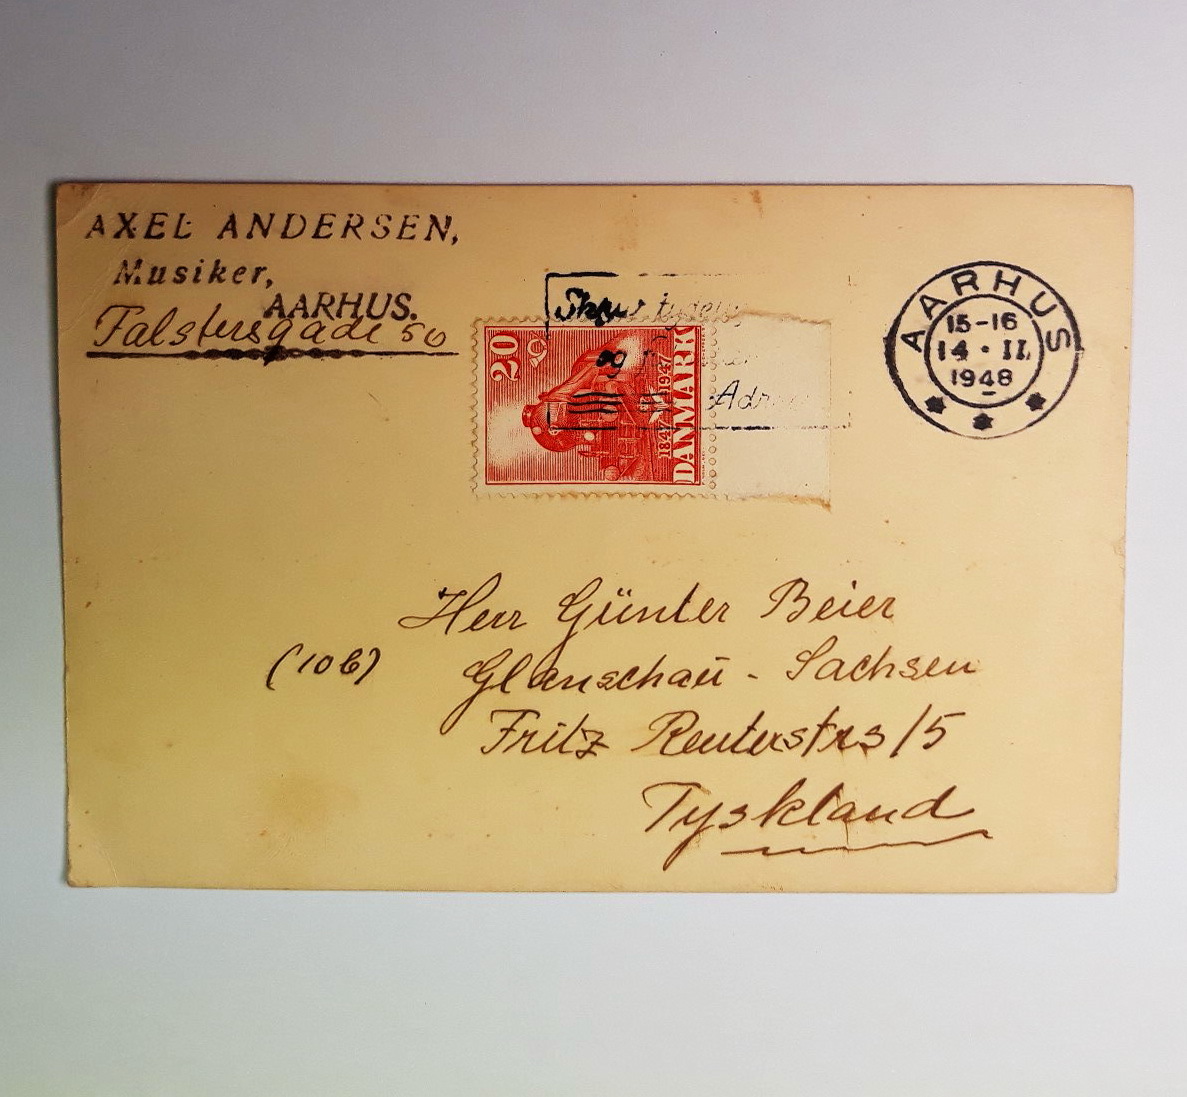 AXEL ANDERSEN,
Musiker,
AARHUS.
Falstersgade 50
Skriv tydelig
og
Adr
20
1847 1947
DANMARK
AARHUS
15-16
14 · II
1948
Herr Günter Beier
(10b) Glanschaū - Sachsen
Fritz Reuterstrs /5
Tyskland